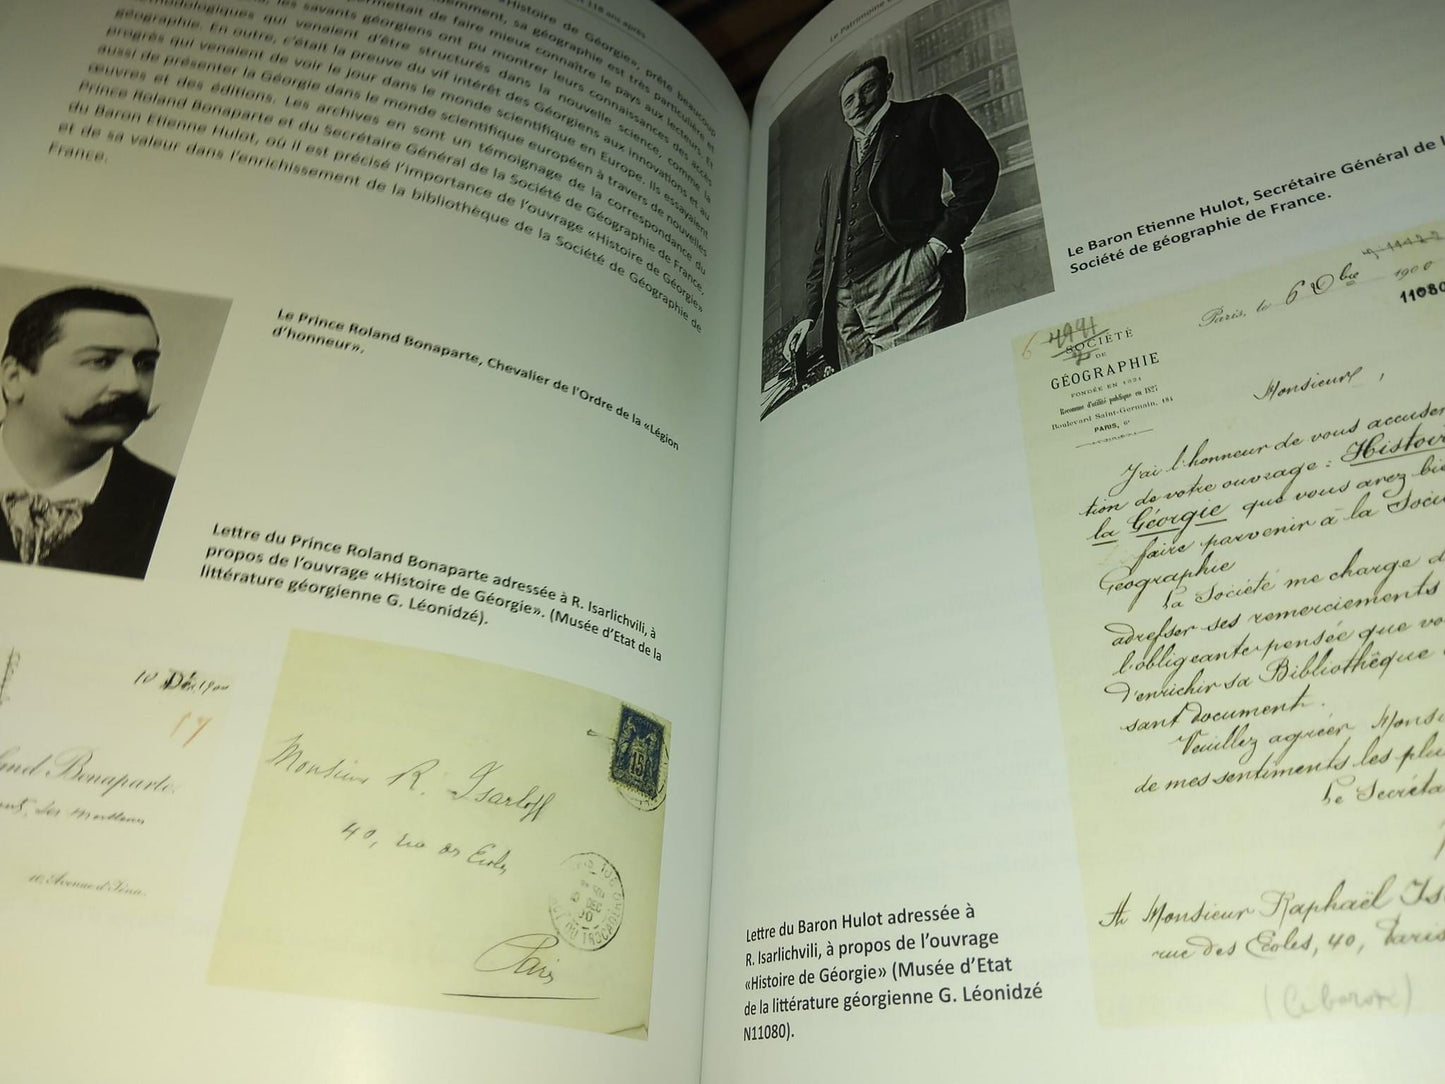 118 ans après
«Histoire de Géorgie», prête beaucoup
permettait de faire mieux connaître le pays aux lecteurs. Et
sa géographie est très particulière
les savants géorgiens ont pu montrer leurs connaissances des accès
méthodologiques qui venaient d'être structurés dans la nouvelle science, comme la
géographie. En outre, c'était la preuve du vif intérêt des Géorgiens aux innovations et au
progrès qui venaient de voir le jour dans le monde scientifique en Europe. Ils essayaient
aussi de présenter la Géorgie dans le monde scientifique européen à travers de nouvelles
œuvres et des éditions. Les archives en sont un témoignage de la correspondance du
Prince Roland Bonaparte et du Secrétaire Général de la Société de Géographie de France,
du Baron Etienne Hulot, où il est précisé l'importance de l'ouvrage «Histoire de Géorgie»
et de sa valeur dans l'enrichissement de la bibliothèque de la Société de Géographie de
France.
Le Prince Roland Bonaparte, Chevalier de l'Ordre de la «Légion
d'honneur».
Lettre du Prince Roland Bonaparte adressée à R. Isarlichvili, à
propos de l'ouvrage «Histoire de Géorgie». (Musée d'Etat de la
littérature géorgienne G. Léonidzé).
10 Déc 1900
17
Bonaparte
10, Avenue d'Iéna.
15
Monsieur R. Isarloff
40, rue des Ecoles
DEC
TROCADERO
Paris
Le Patrimoine
Le Baron Etienne Hulot, Secrétaire Général de l
Société de géographie de France.
Paris, le 6 Dbre 1900
11080
SOCIÉTÉ
DE
GÉOGRAPHIE
FONDÉE EN 1821
Reconnue d'utilité publique en 1827
Boulevard Saint-Germain, 184
PARIS, 6e
Monsieur,
J'ai l'honneur de vous accuser
tion de votre ouvrage : Histoir
la Géorgie que vous avez bi
faire parvenir à la Soci
Géographie
La Société me charge d
adresser ses remerciements
l'obligeante pensée que vo
d'enrichir sa Bibliothèque
sant document.
Veuillez agréer Monsi
de mes sentiments les plu
Le Secréta
A Monsieur Raphaël Is
rue des Ecoles, 40, Paris
(Le baron)
Lettre du Baron Hulot adressée à
R. Isarlichvili, à propos de l'ouvrage
«Histoire de Géorgie» (Musée d'Etat
de la littérature géorgienne G. Léonidzé
N11080).